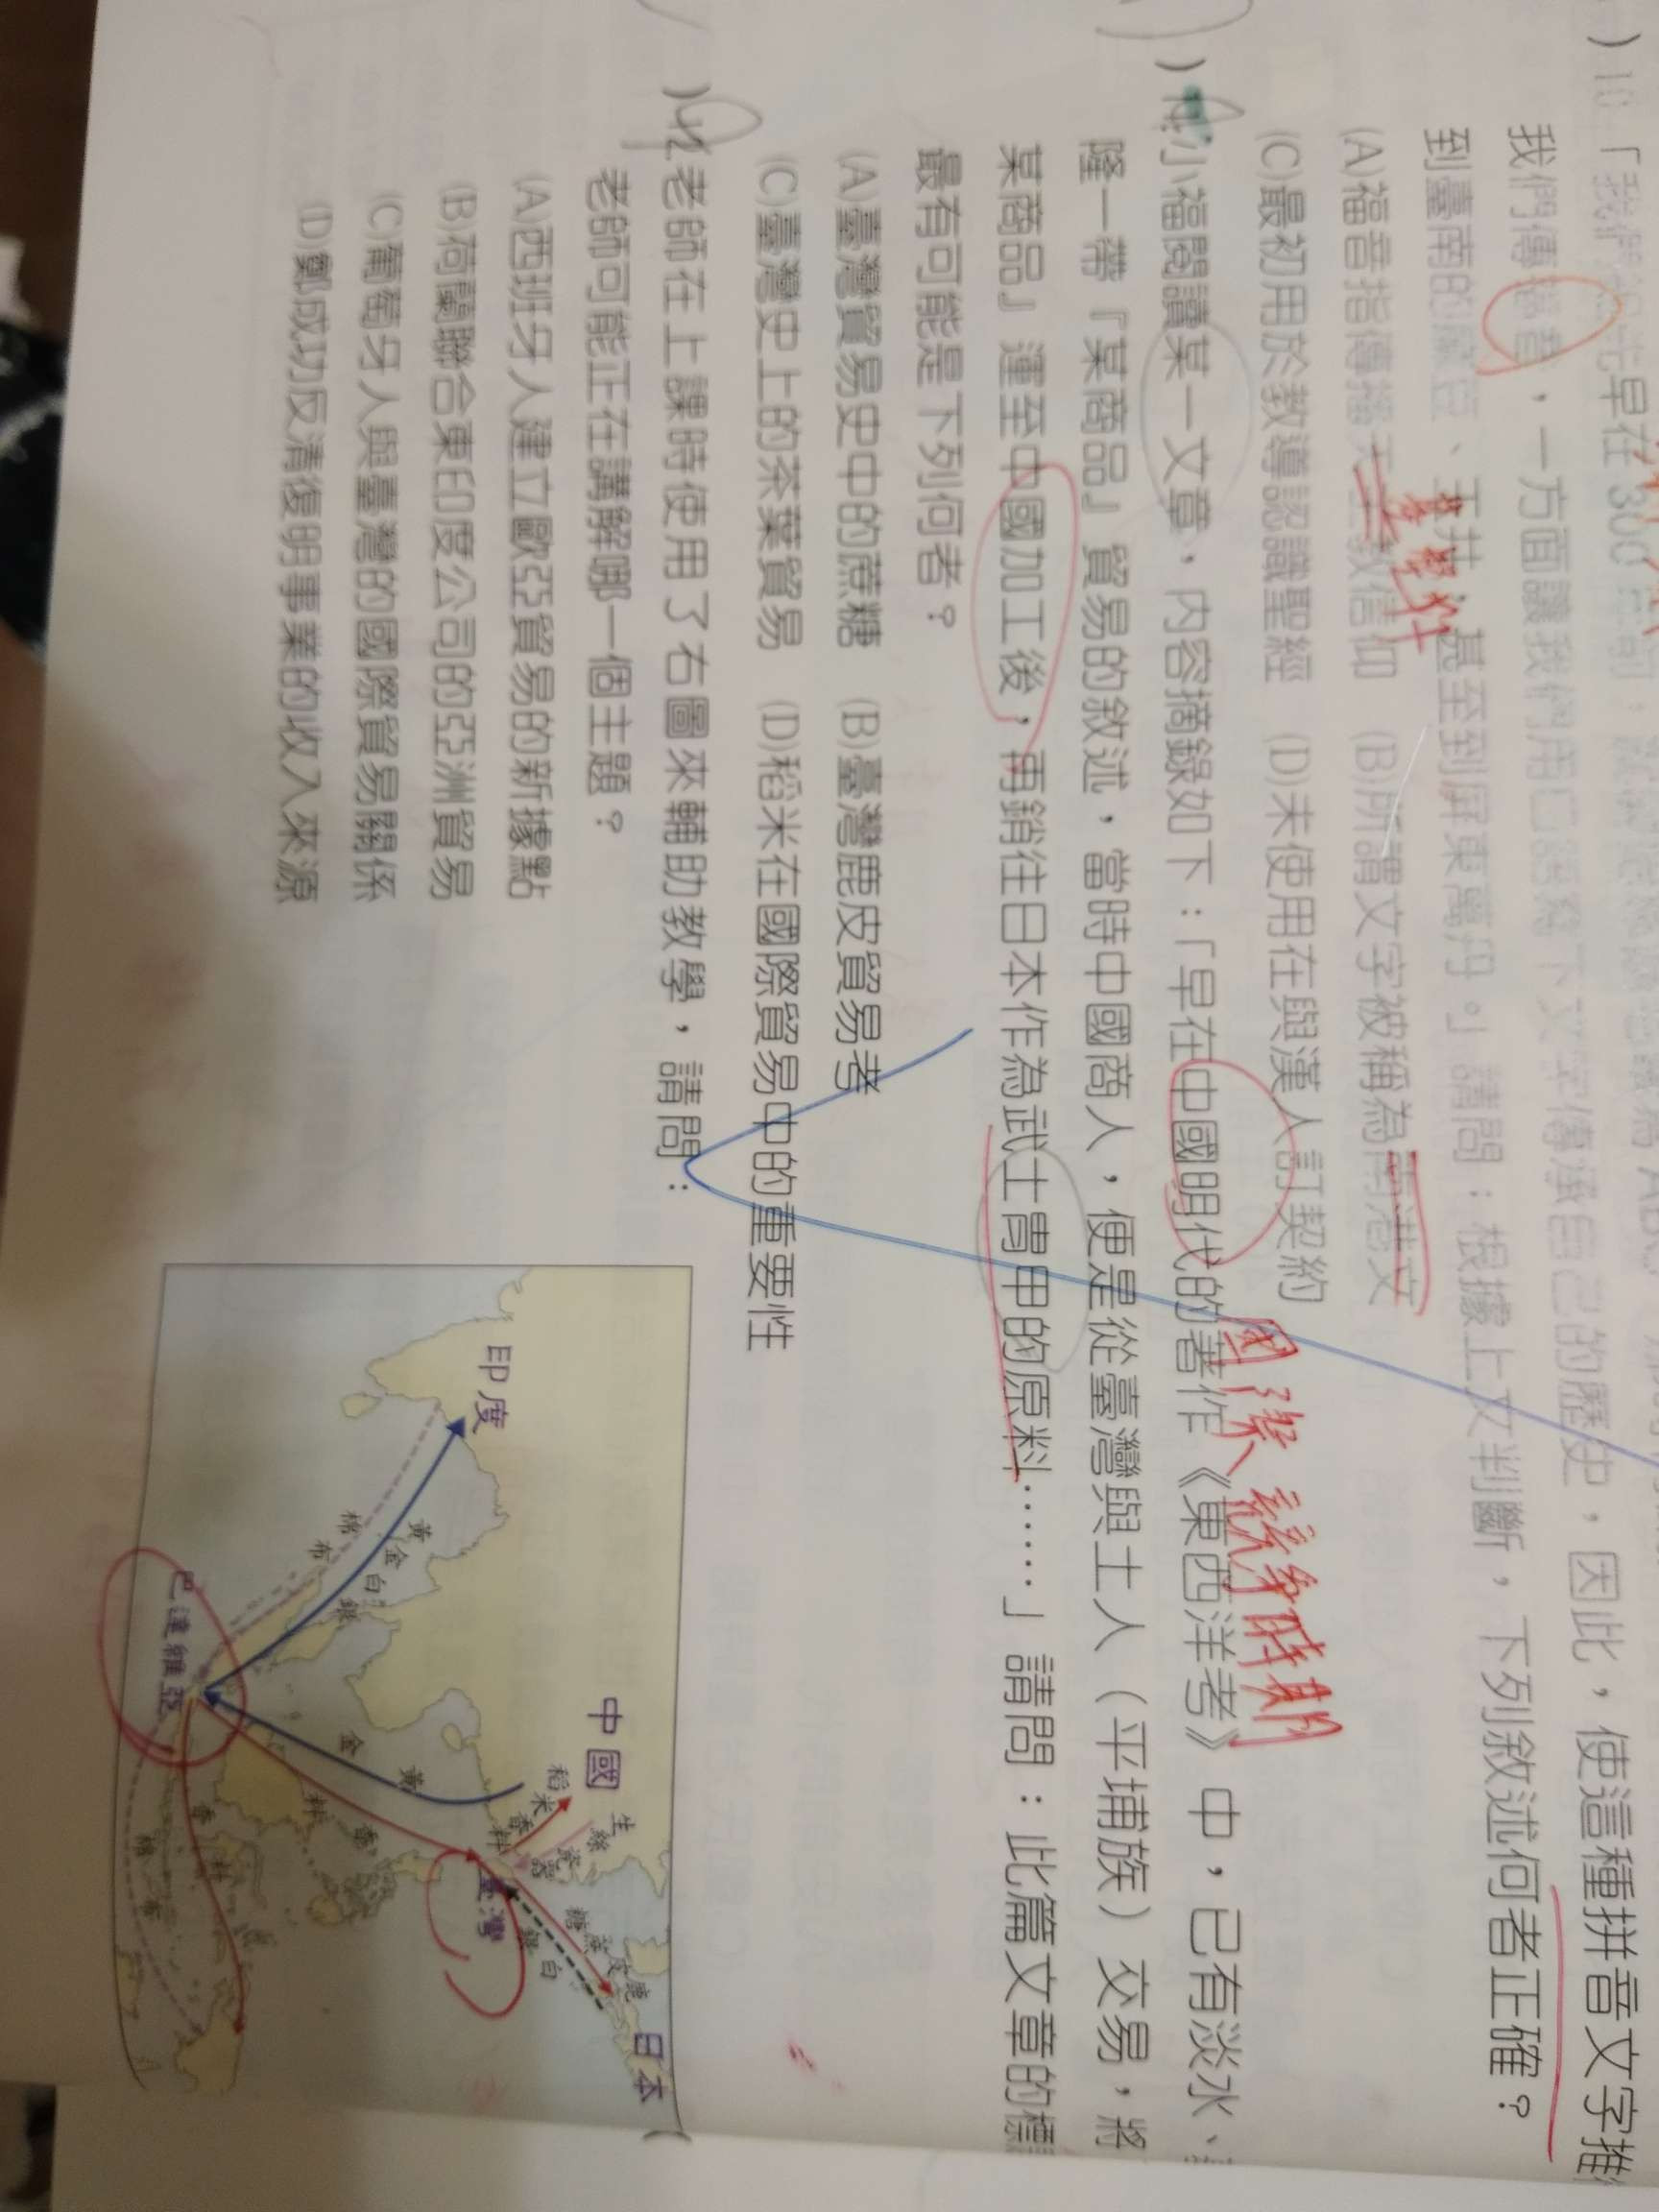 )10.「我們祖先早在 300 年前，
我們傳福音，一方面讓我們用已經寫下文字傳承自己的歷史，因此，使這種拼音文字推
到臺南的麻豆、 甚至到屏東萬丹。」請問：根據上文判斷，下列敘述何者正確？
(A)福音指傳播天主教信仰 (B)所謂文字被稱為南港文
基督
(C)最初用於教導認識聖經 (D)未使用在與漢人訂契約
國際競爭時期
)11.小福閱讀某一文章，內容摘錄如下：「早在中國明代的著作《東西洋考》中，已有淡水、
隆一帶『某商品』貿易的敘述，當時中國商人，便是從臺灣與土人（平埔族）交易，將
某商品』運至中國加工後，再銷往日本作為武士冑甲的原料……」請問：此篇文章的標
最有可能是下列何者？
(A)臺灣貿易史中的蔗糖 (B)臺灣鹿皮貿易考
(C)臺灣史上的茶葉貿易 (D)稻米在國際貿易中的重要性
)12.老師在上課時使用了右圖來輔助教學，請問：
老師可能正在講解哪一個主題？
(A)西班牙人建立歐亞貿易的新據點
(B)荷蘭聯合東印度公司的亞洲貿易
(C)葡萄牙人與臺灣的國際貿易關係
(D)鄭成功反清復明事業的收入來源
印度
中國
日本
臺灣
巴達維亞
黃金白銀
棉布
黃金
香料
稻米
生絲
瓷器
香料
蔗糖
鹿皮
白銀
香料
棉布